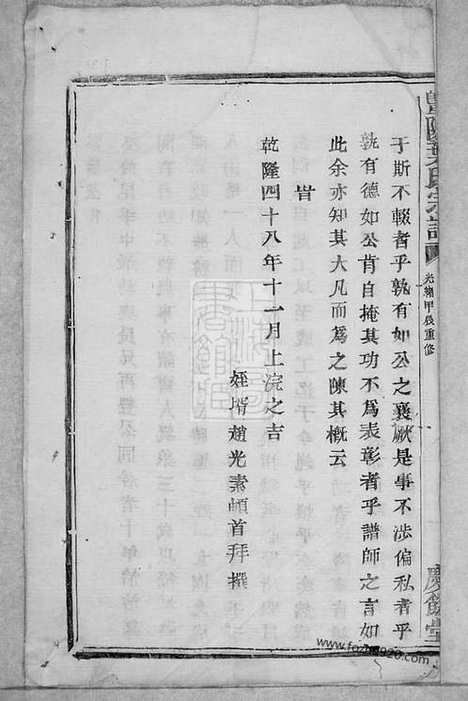 葉氏宗譜
光緒甲辰重修
慶餘堂
于斯不輟者乎孰有如公之襄厥是事不涉偏私者乎
孰有德如公肯自掩其功不爲表彰者乎譜師之言如
此余亦知其大凡而爲之陳其概云
旹
乾隆四十八年十一月上浣之吉
姪壻趙光素頓首拜撰